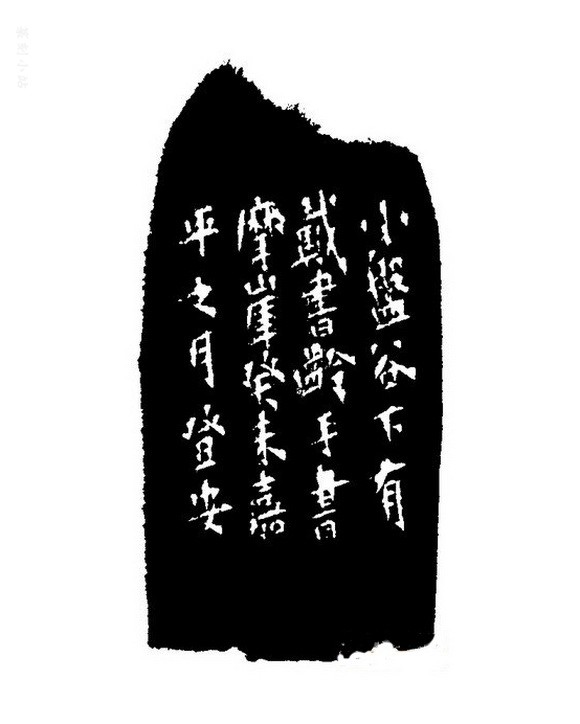 小盤谷下有
戴書齡手書
摩山庫癸未嘉
平之月登安